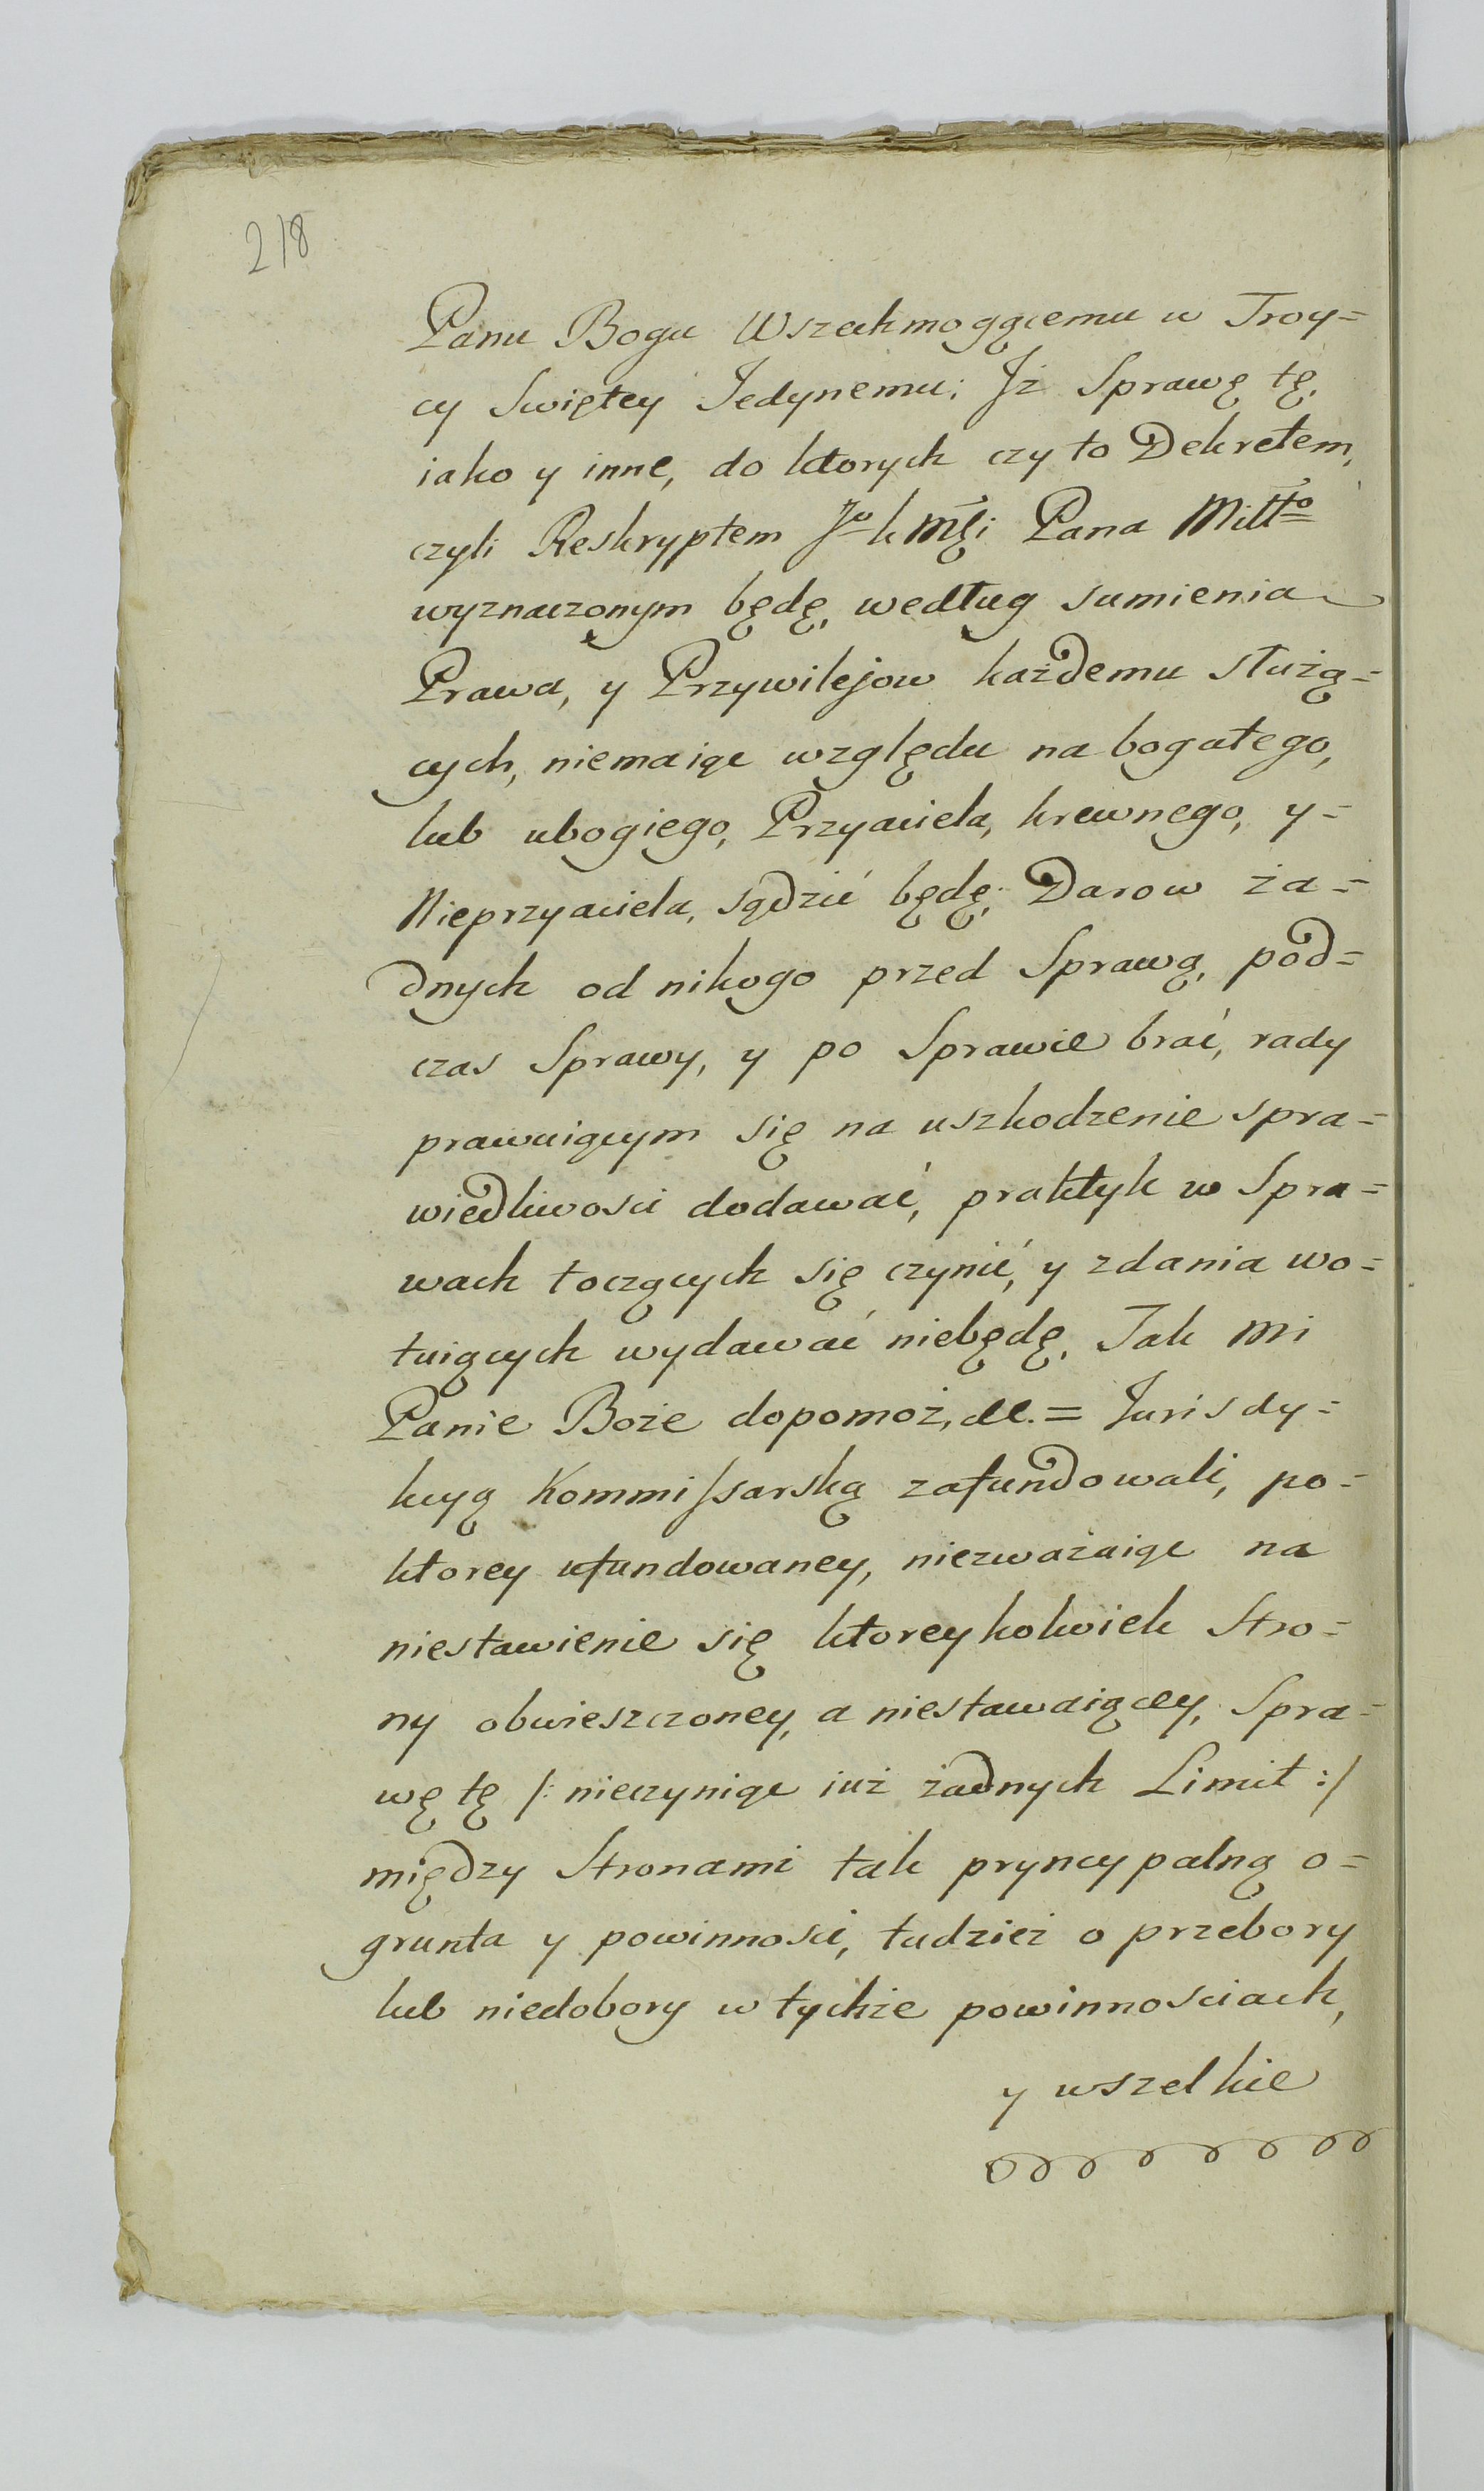 218
Panu Bogu Wszechmogącemu w Troy=
cy Swiętey Jedynemu; Jż Sprawę tę,
iako y inne, do ktorych czy to Dekretem,
czyli Reskryptem Jo K Mći Pana Miłło
wyznaczonym będę, według sumienia
Prawa, y Przywilejow każdemu służą=
cych, niemaiąc względu na bogatego,
lub ubogiego, Przyaciela, krewnego, y=
Nieprzyaciela, sądzić będę; Darow ża=
dnych od nikogo przed Sprawą, pod=
czas Sprawy, y po Sprawie brać, rady
prawuiącym się na uszkodzenie spra=
wiedliwosci dodawać, praktyk w Spra=
wach toczących się czynić, y zdania wo=
tuiących wydawać niebędę, Tak mi
Panie Boże dopomoż, &c. = Jurisdy=
kcyą Kommissarską zafundowali, po=
ktorey ufundowaney, niezważaiąc na
niestawienie się ktoreykolwiek Stro=
ny obwieszczoney, a niestawaiącey, Spra=
wę tę /: nieczyniąc iuż żadnych Limit :/
między Stronami tak pryncypalną o=
grunta y powinnosci, tudzież o przebory
lub niedobory w tychże powinnosciach,
y wszelkie